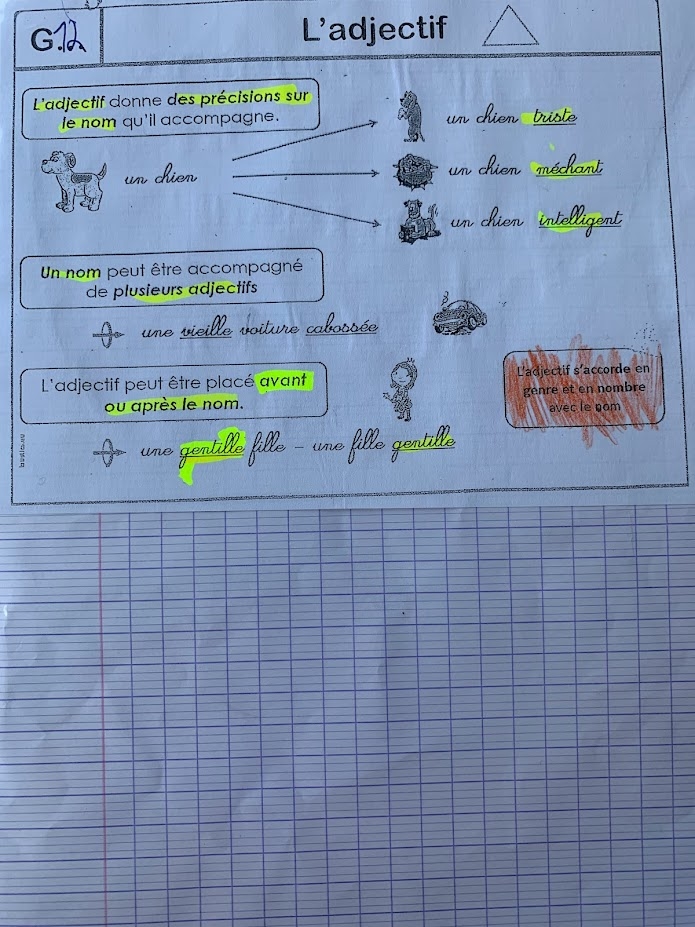 G.12
L'adjectif
L'adjectif donne des précisions sur
le nom qu'il accompagne.
un chien
un chien triste
un chien méchant
un chien intelligent
Un nom peut être accompagné
de plusieurs adjectifs
une vieille voiture cabossée
L'adjectif peut être placé avant
ou après le nom.
L'adjectif s'accorde en
genre et en nombre
avec le nom
une gentille fille – une fille gentille